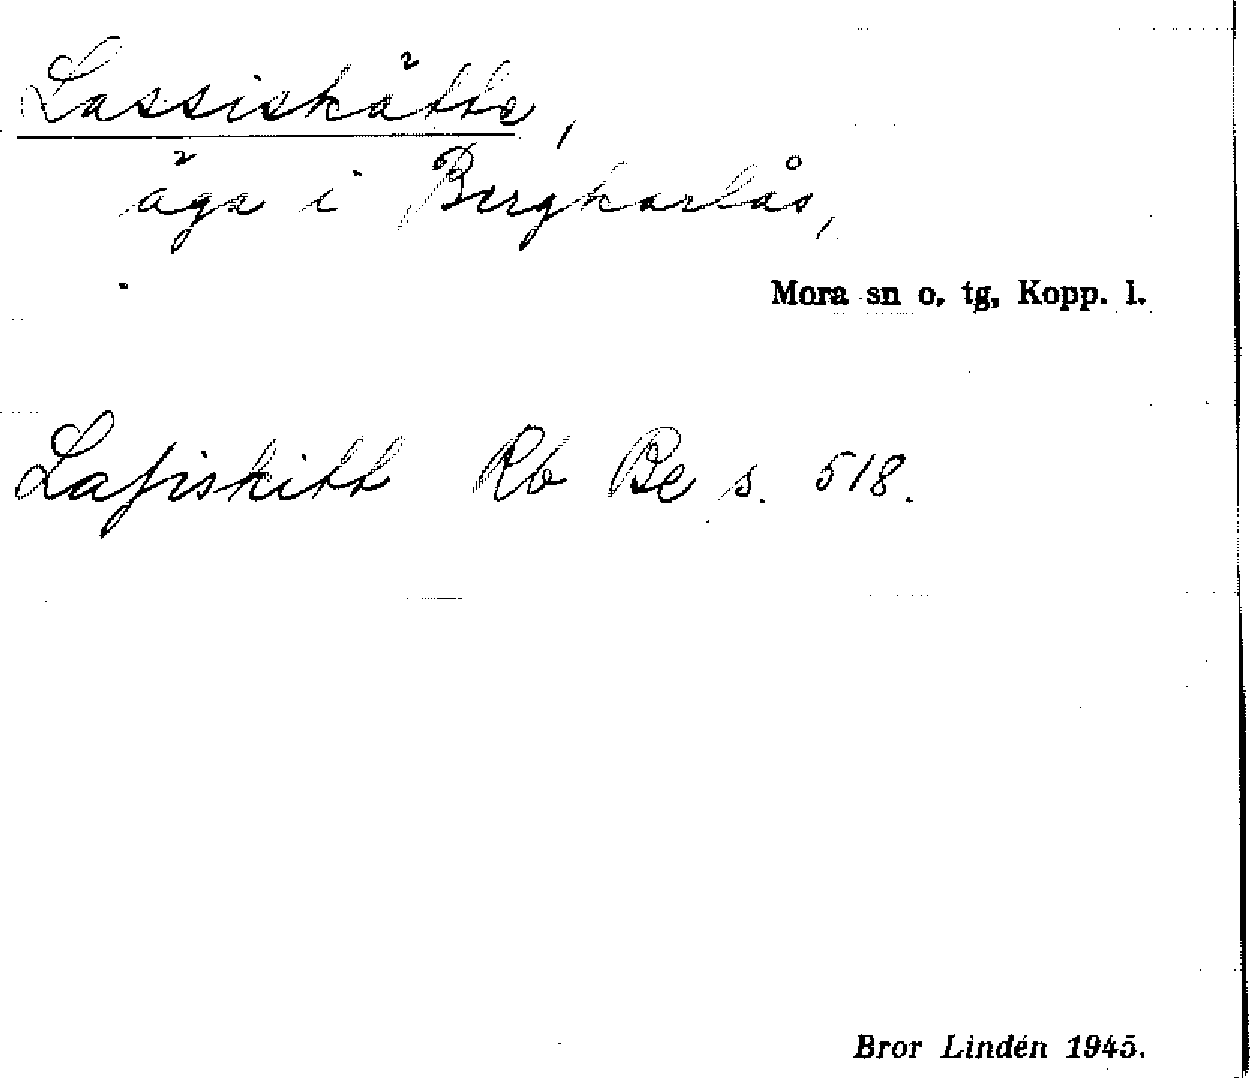 Lassiskätte,
äga i Bergkarlås,
Mora sn o. tg, Kopp. l.
Lassiskitt Rb Be s. 518.
Bror Lindén 1945.